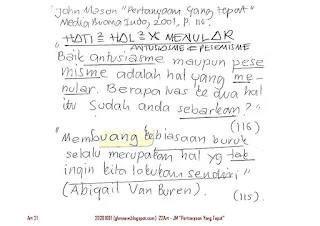 John Mason "Pertanyaan Yang Tepat"
Media Buana Indo, 2001, p. 116.
"HATI ² HAL ² X MENULAR
ANTUSIASME & PESEMISME
Baik antusiasme maupun pese
misme adalah hal yang me-
nular. Berapa luas ke dua hal
itu sudah anda sebarkan?"
(116)
"Membuang kebiasaan buruk
selalu merupakan hal yg tak
ingin kita lakukan sendiri"
(Abigail Van Buren). (115).
Art 21 20201001 [glmnew.blogspot.com] ZZArt - JM "Pertanyaan Yang Tepat"